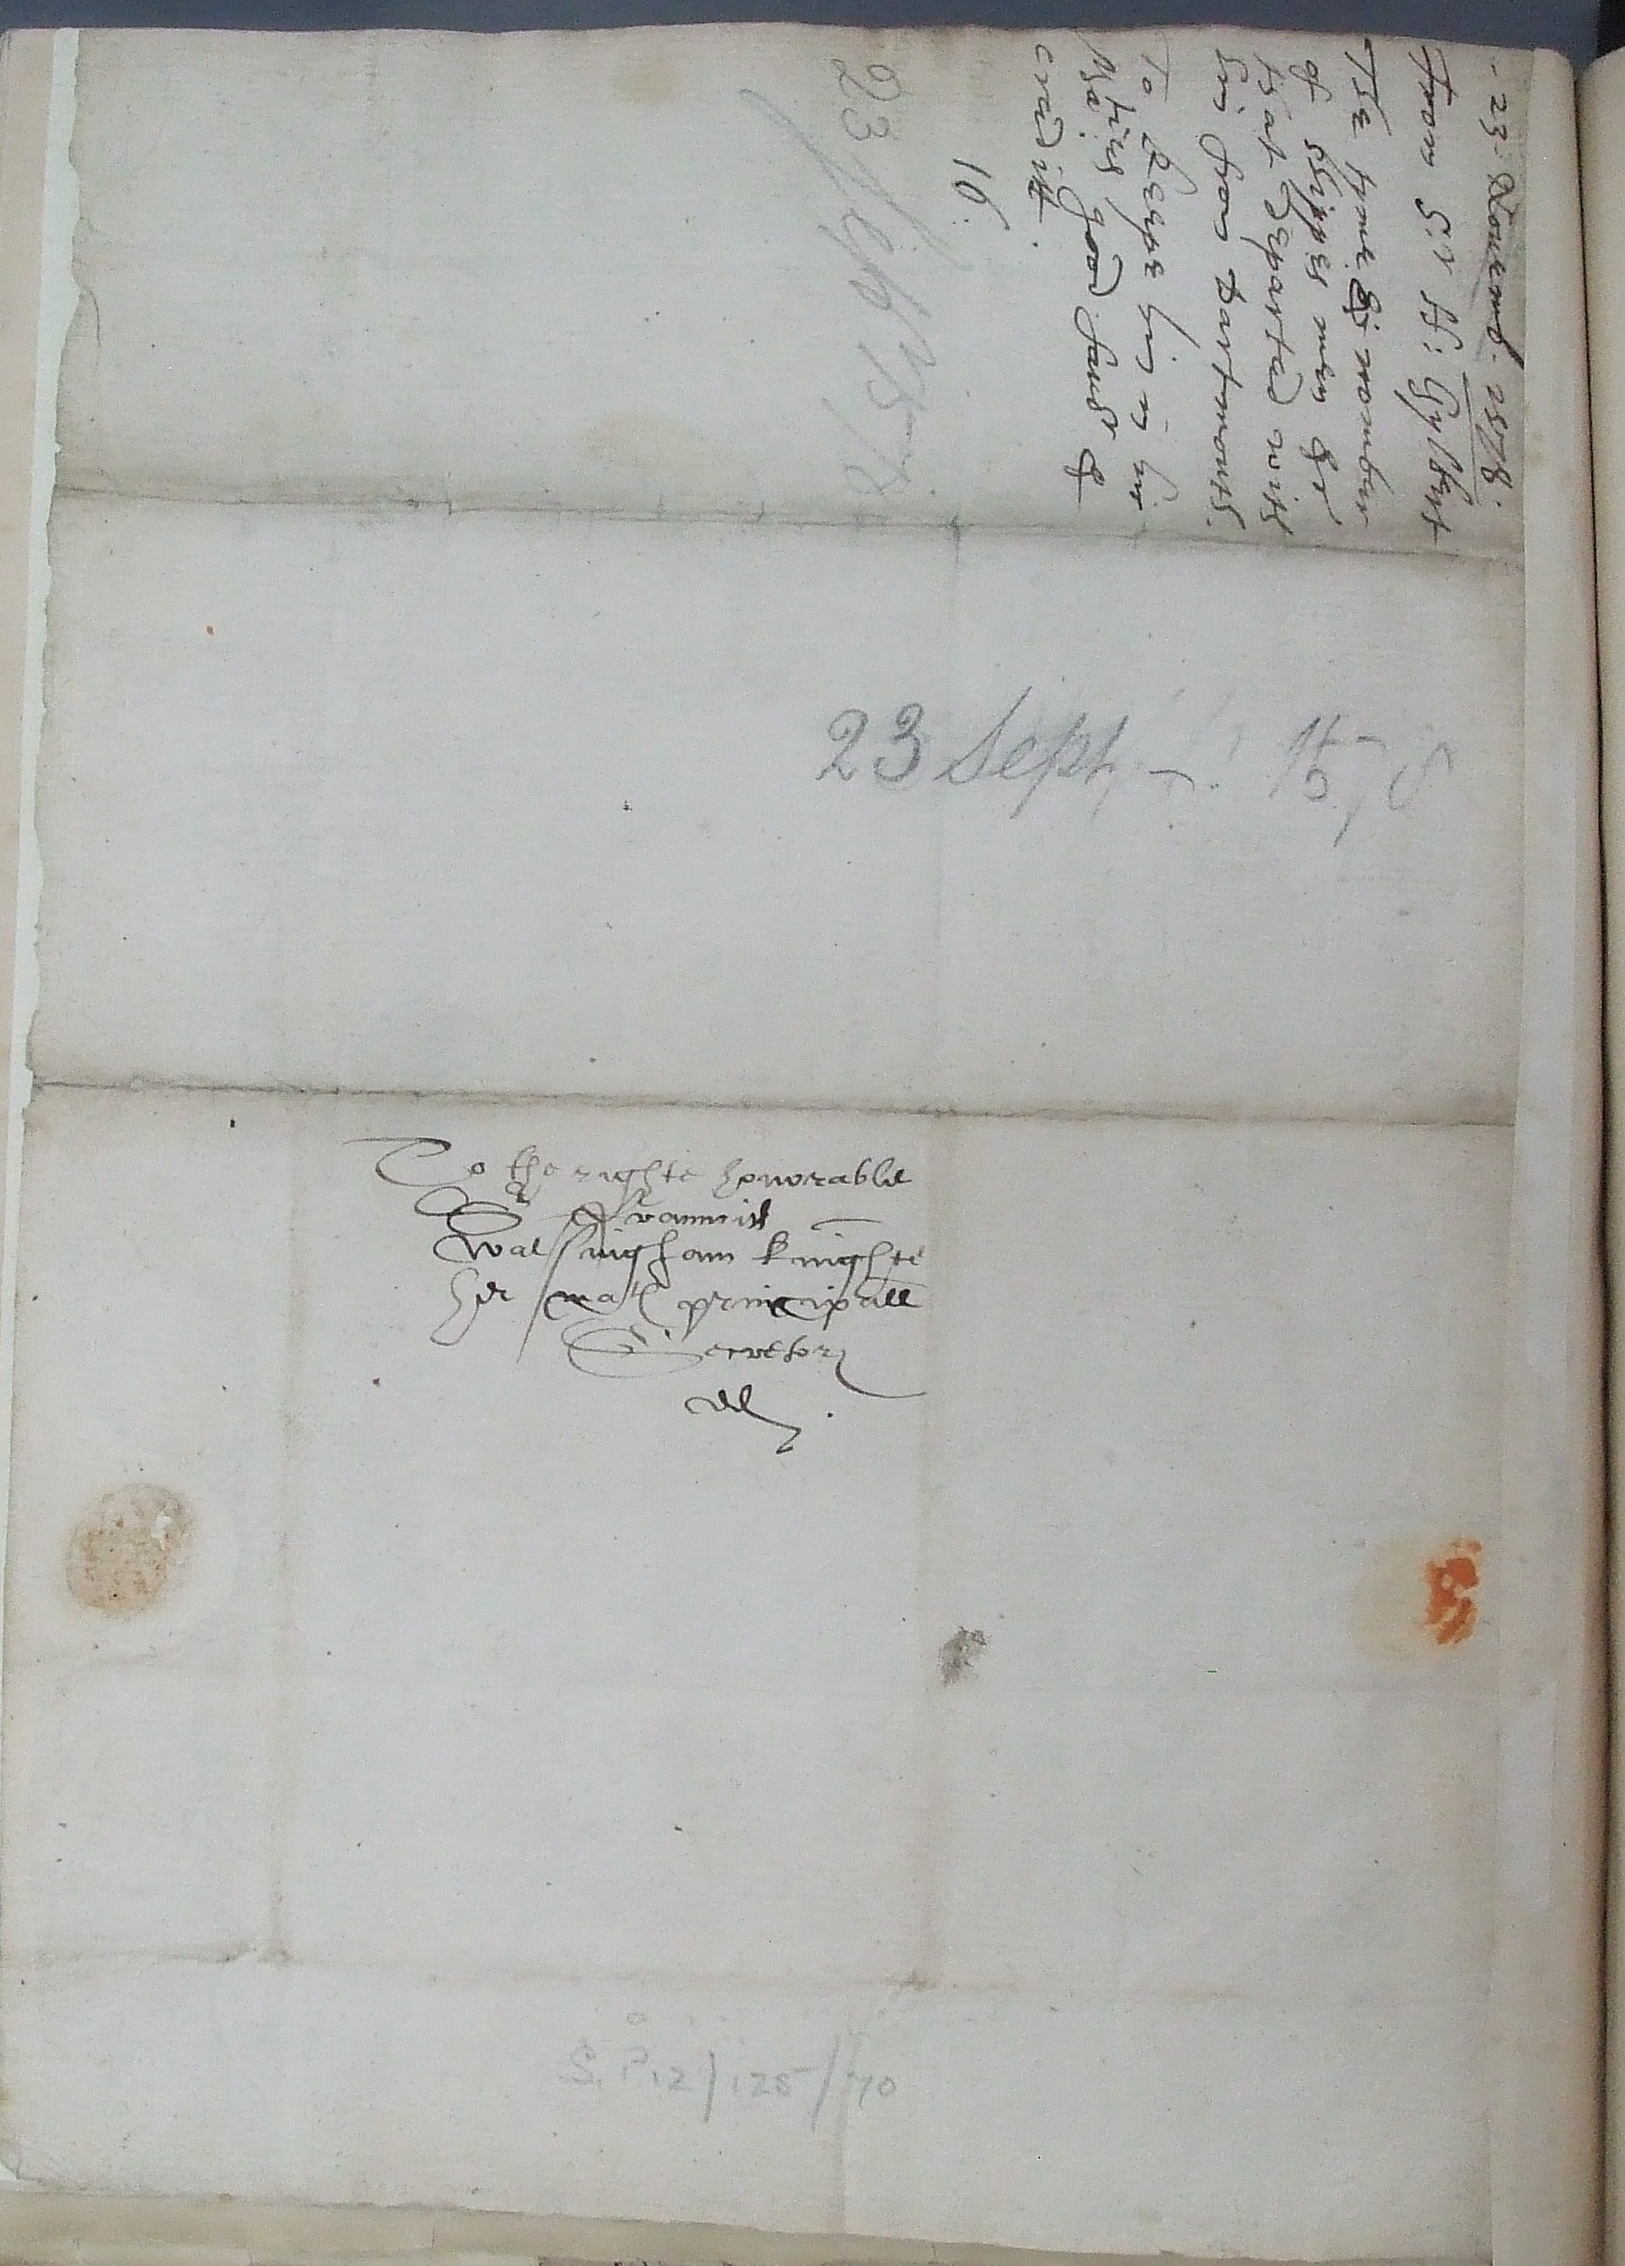 - 23 Nouemb. 1578.
From Sr H: Gylbert
The tyme & nomber
of shippes men &c
that departed with
him from Dartmouth.
To keepe him in hir
Maties good favor &
creditt.
16.
23 Sept
23 Sept 1578
To the righte honorable
Sr Frauncis
Walsingham knighte
her matis principall
Secretory
dd
S.P. 12/125/70